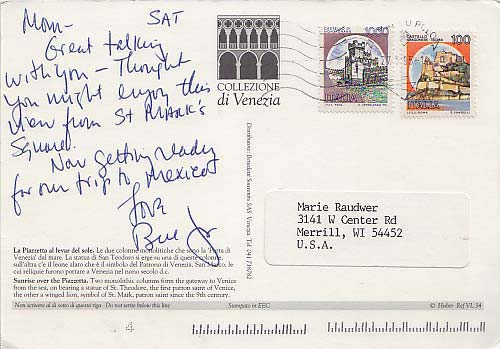 Mom— SAT
Great talking
with you — Thought
you might enjoy this
view from St MARK's
Square.
Now getting ready
for our trip to Mexico!
Love
Bill Jr
COLLEZIONE
di Venezia
1000
CASTELLO
ITALIA
100
CASTELLO
ITALIA
Marie Raudwer
3141 W Center Rd
Merrill, WI 54452
U.S.A.
La Piazzetta al levar del sole. Le due colonne monolitiche che sono la 'Porta di
Venezia' dal mare. La statua di San Teodoro si erge su una di queste colonne,
sull'altra c'è il leone alato che è il simbolo del Patrono di Venezia, San Marco, le
cui reliquie furono portate a Venezia nel nono secolo d.c.
Sunrise over the Piazzetta. Two monolithic columns form the gateway to Venice
from the sea, on bearing a statue of St. Theodore, the first patron saint of Venice,
the other a winged lion, symbol of St. Mark, patron saint since the 9th century.
Non scrivere al di sotto di questa riga Do not write below this line
Stampato in EEC
© Huber Ref VL 34
4